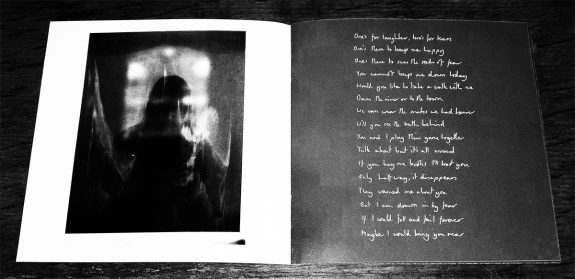 One's for laughter, two's for tears
One's there to keep me happy
One's there to sow the seeds of fear
You cannot keep me down today
Would you like to take a walk with me
Down the river or to the town
We can wear the masks we had before
Will you see the truth behind
You and I play their game together
Talk about but it's all around
If you buy me I'll beat you
Only half way, it disappears
They warned me about you
But I am drawn in by fear
If I would fall and fail forever
Maybe I would bring you near